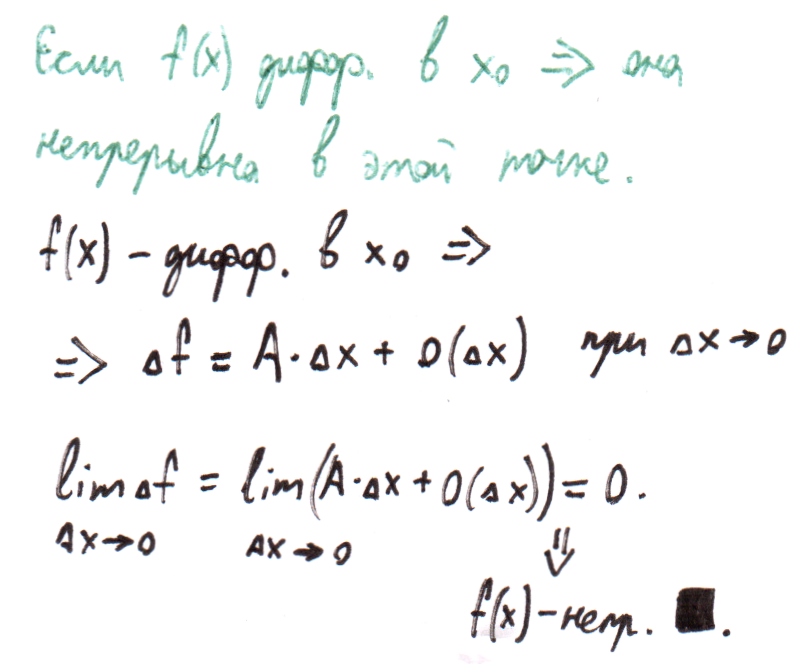 Если f(x) дифф. в x₀ => она
непрерывна в этой точке.
f(x) – дифф. в x₀ =>
=> Δf = A·Δx + o(Δx) при Δx→0
lim Δf = lim (A·Δx + o(Δx)) = 0.
Δx→0 Δx→0 ⇓
f(x) – непр. ■.